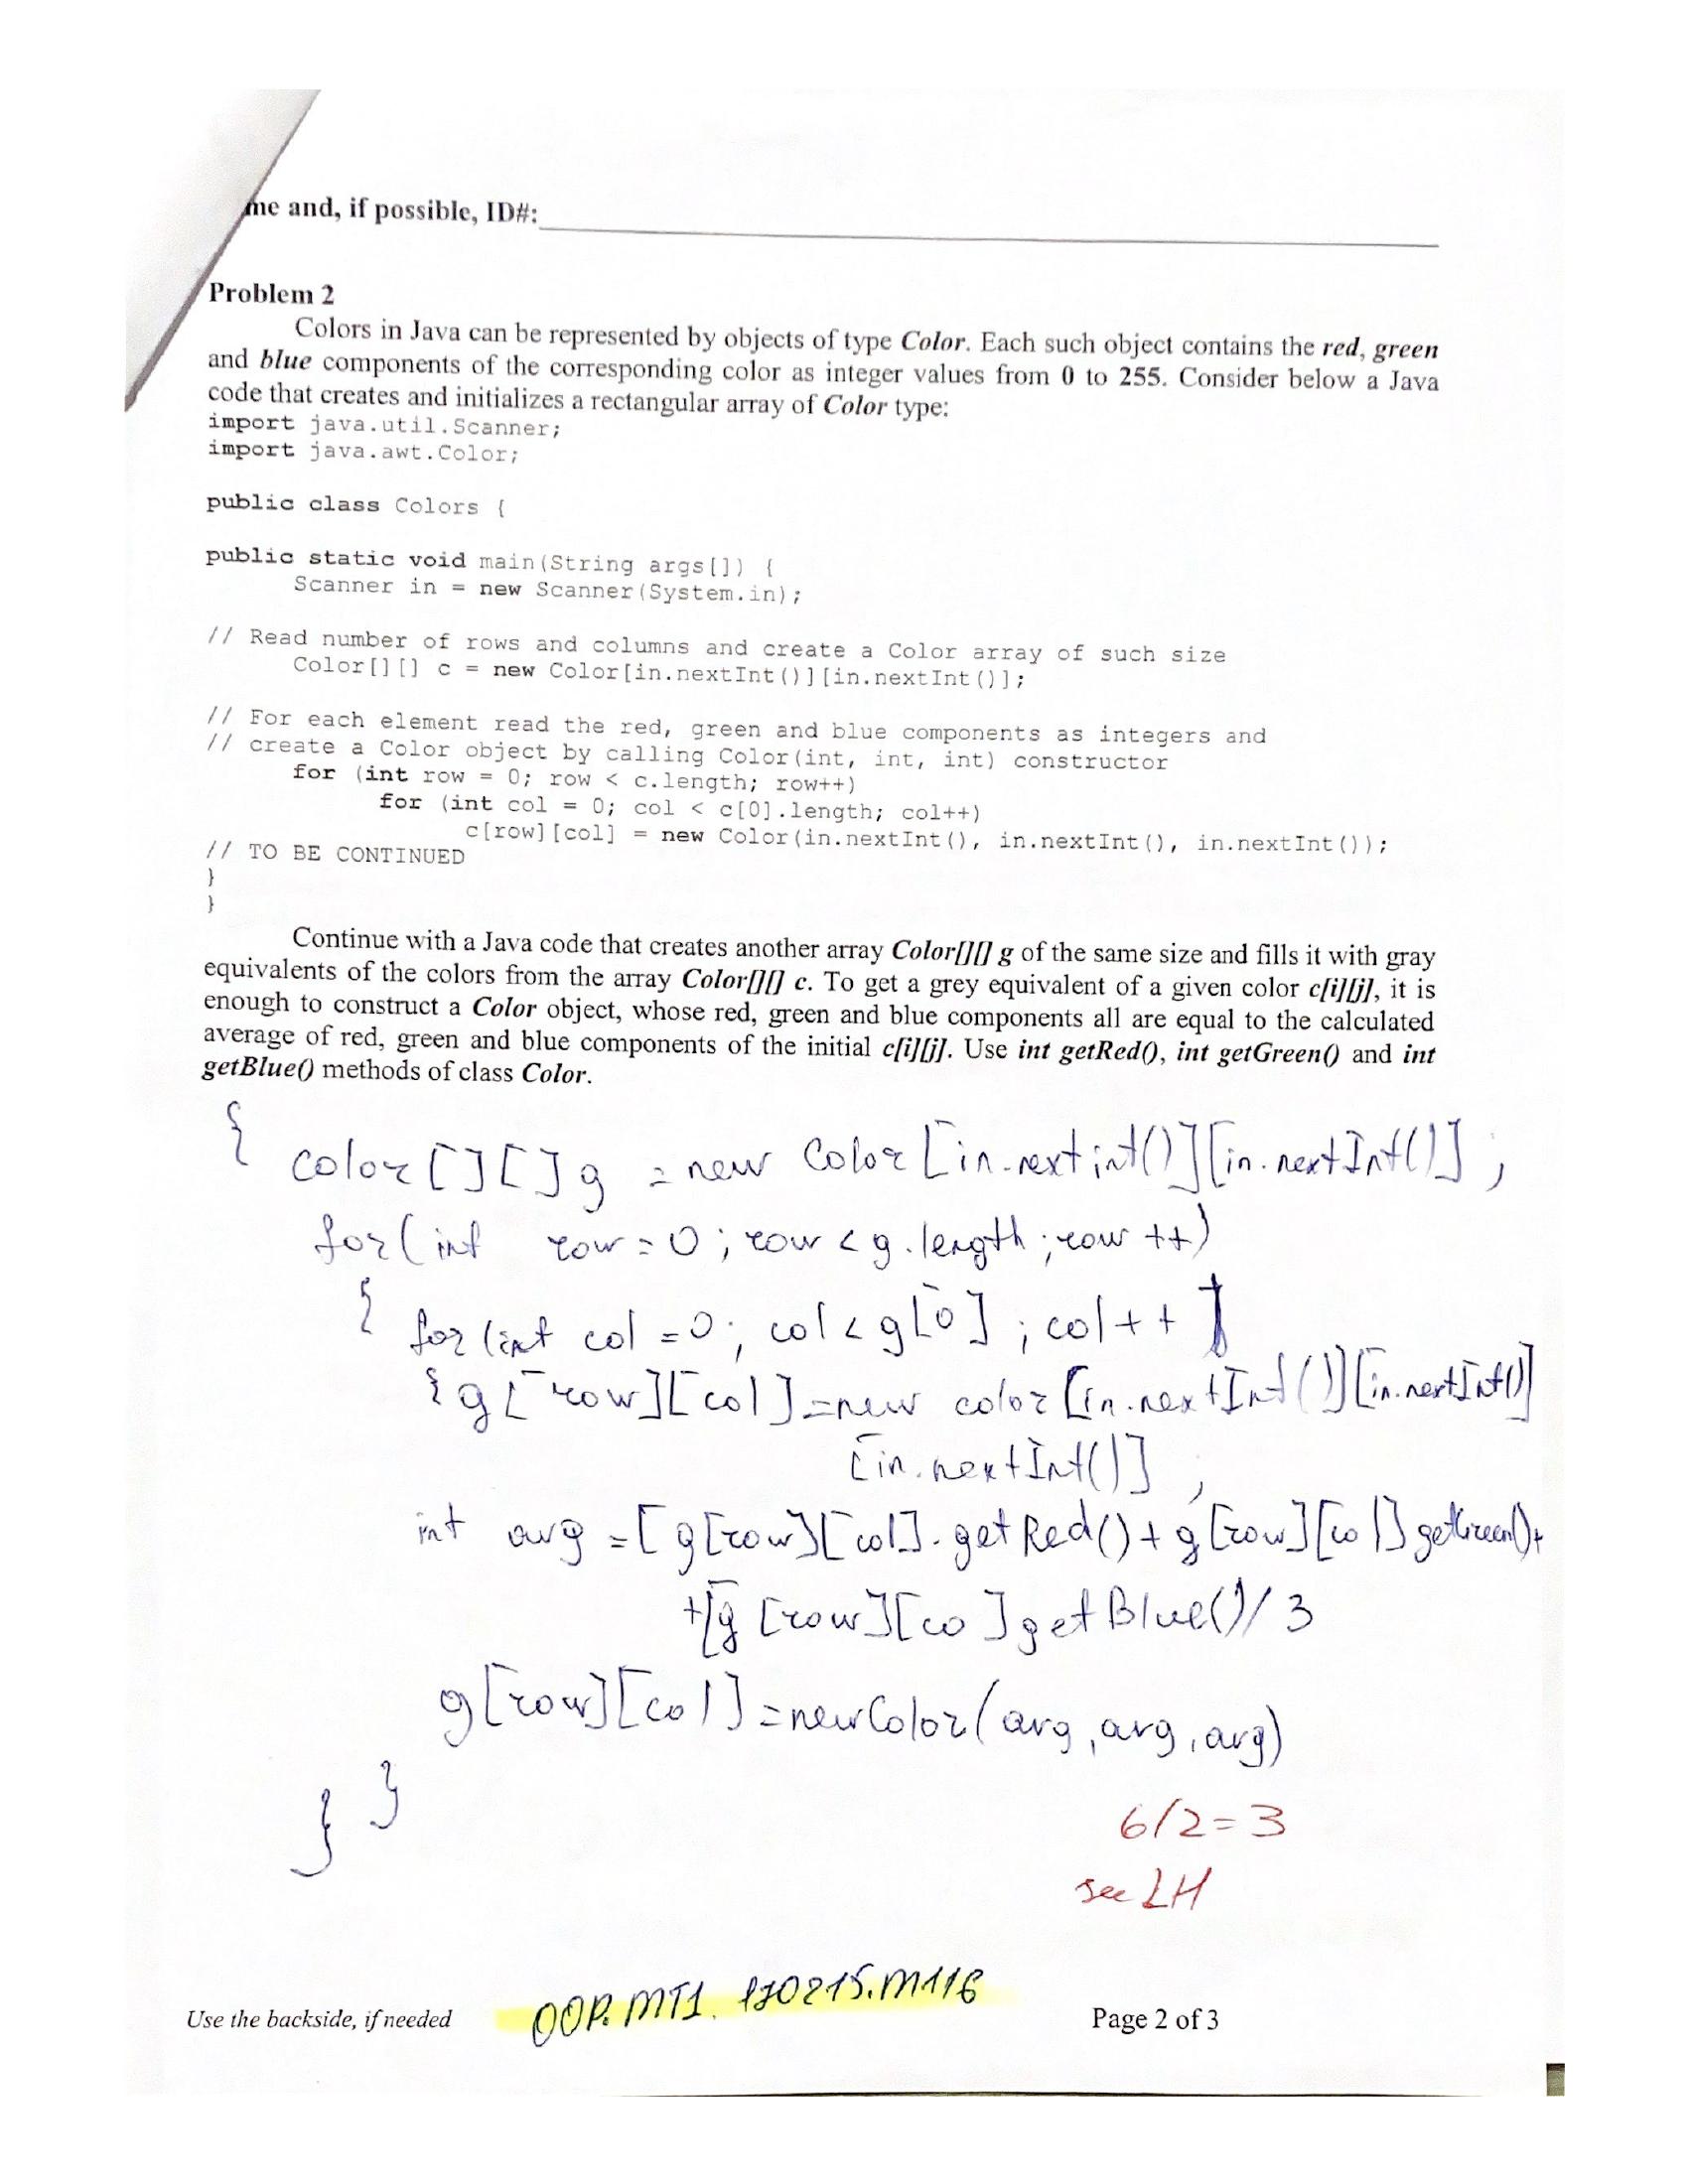 me and, if possible, ID#:
Problem 2
Colors in Java can be represented by objects of type Color. Each such object contains the red, green
and blue components of the corresponding color as integer values from 0 to 255. Consider below a Java
code that creates and initializes a rectangular array of Color type:
import java.util.Scanner;
import java.awt.Color;
public class Colors {
public static void main(String args[]) {
Scanner in = new Scanner(System.in);
// Read number of rows and columns and create a Color array of such size
Color[][] c = new Color[in.nextInt()][in.nextInt()];
// For each element read the red, green and blue components as integers and
// create a Color object by calling Color(int, int, int) constructor
for (int row = 0; row < c.length; row++)
for (int col = 0; col < c[0].length; col++)
c[row][col] = new Color(in.nextInt(), in.nextInt(), in.nextInt());
// TO BE CONTINUED
}
}
Continue with a Java code that creates another array Color[][] g of the same size and fills it with gray
equivalents of the colors from the array Color[][] c. To get a grey equivalent of a given color c[i][j], it is
enough to construct a Color object, whose red, green and blue components all are equal to the calculated
average of red, green and blue components of the initial c[i][j]. Use int getRed(), int getGreen() and int
getBlue() methods of class Color.
{ color[][]g = new Color[in.nextint()][in.nextInt()];
for(int row=0; row<g.length; row++)
{ for(int col=0; col<g[0]; col++]
{g[row][col]=new color[in.nextInt()][in.nextInt()]
[in.nextInt()];
int avg =[g[row][col].getRed()+g[row][col]getGreen()+
+[g[row][co]getBlue()/3
g[row][col]=newColor(avg,avg,avg)
} }
6/2=3
see LH
Use the backside, if needed
OOP. MT1. 170215.M116
Page 2 of 3